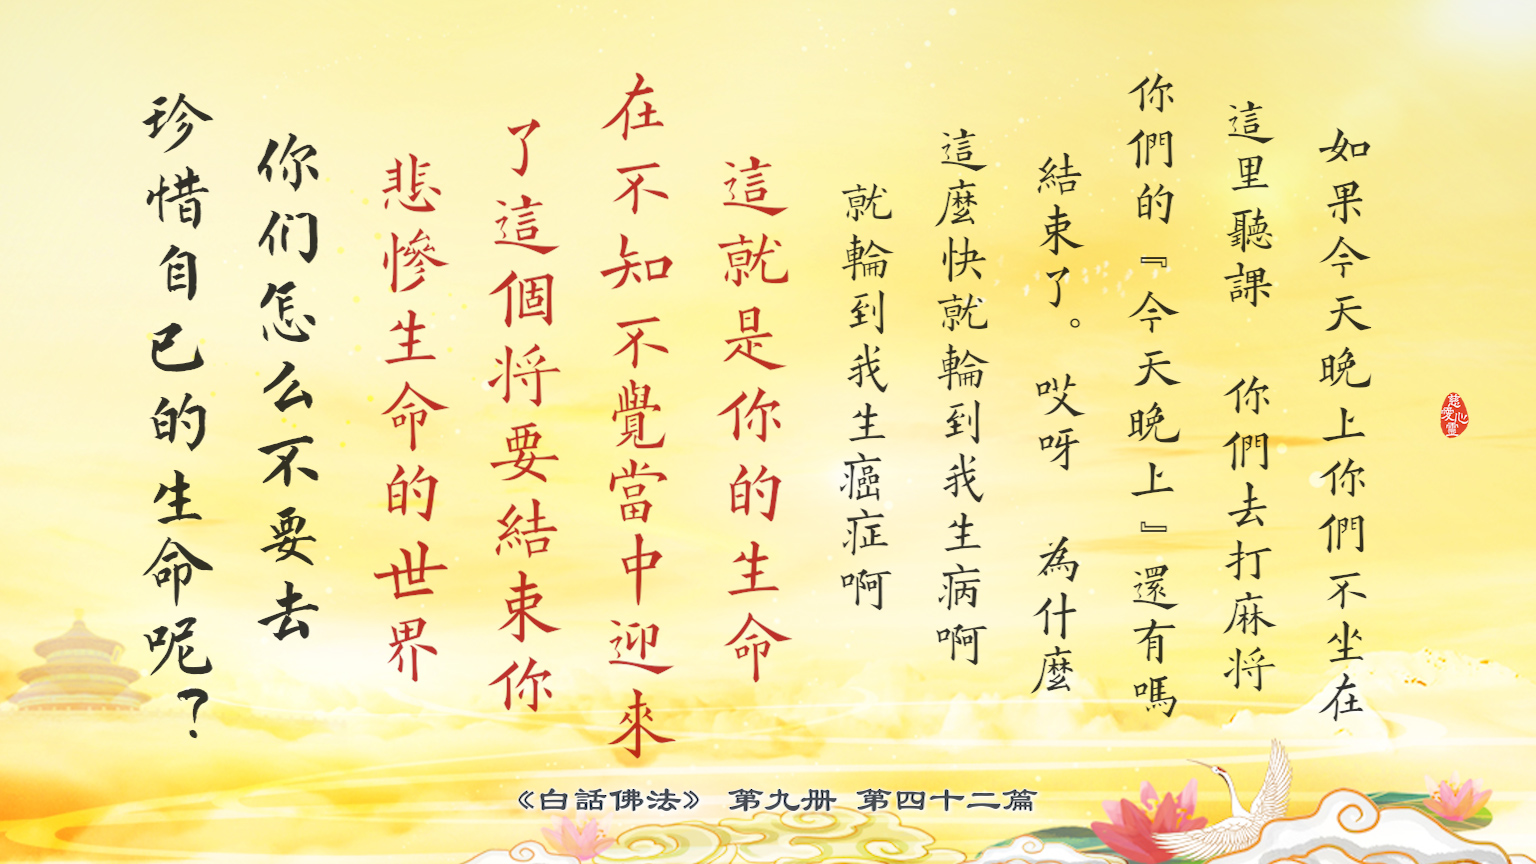 如果今天晚上你們不坐在
這里聽課 你們去打麻将
你們的『今天晚上』還有嗎
結束了。 哎呀 為什麼
這麼快就輪到我生病啊
就輪到我生癌症啊
這就是你的生命
在不知不覺當中迎來
了這個将要結束你
悲慘生命的世界
你们怎么不要去
珍惜自已的生命呢？
《白話佛法》 第九册 第四十二篇